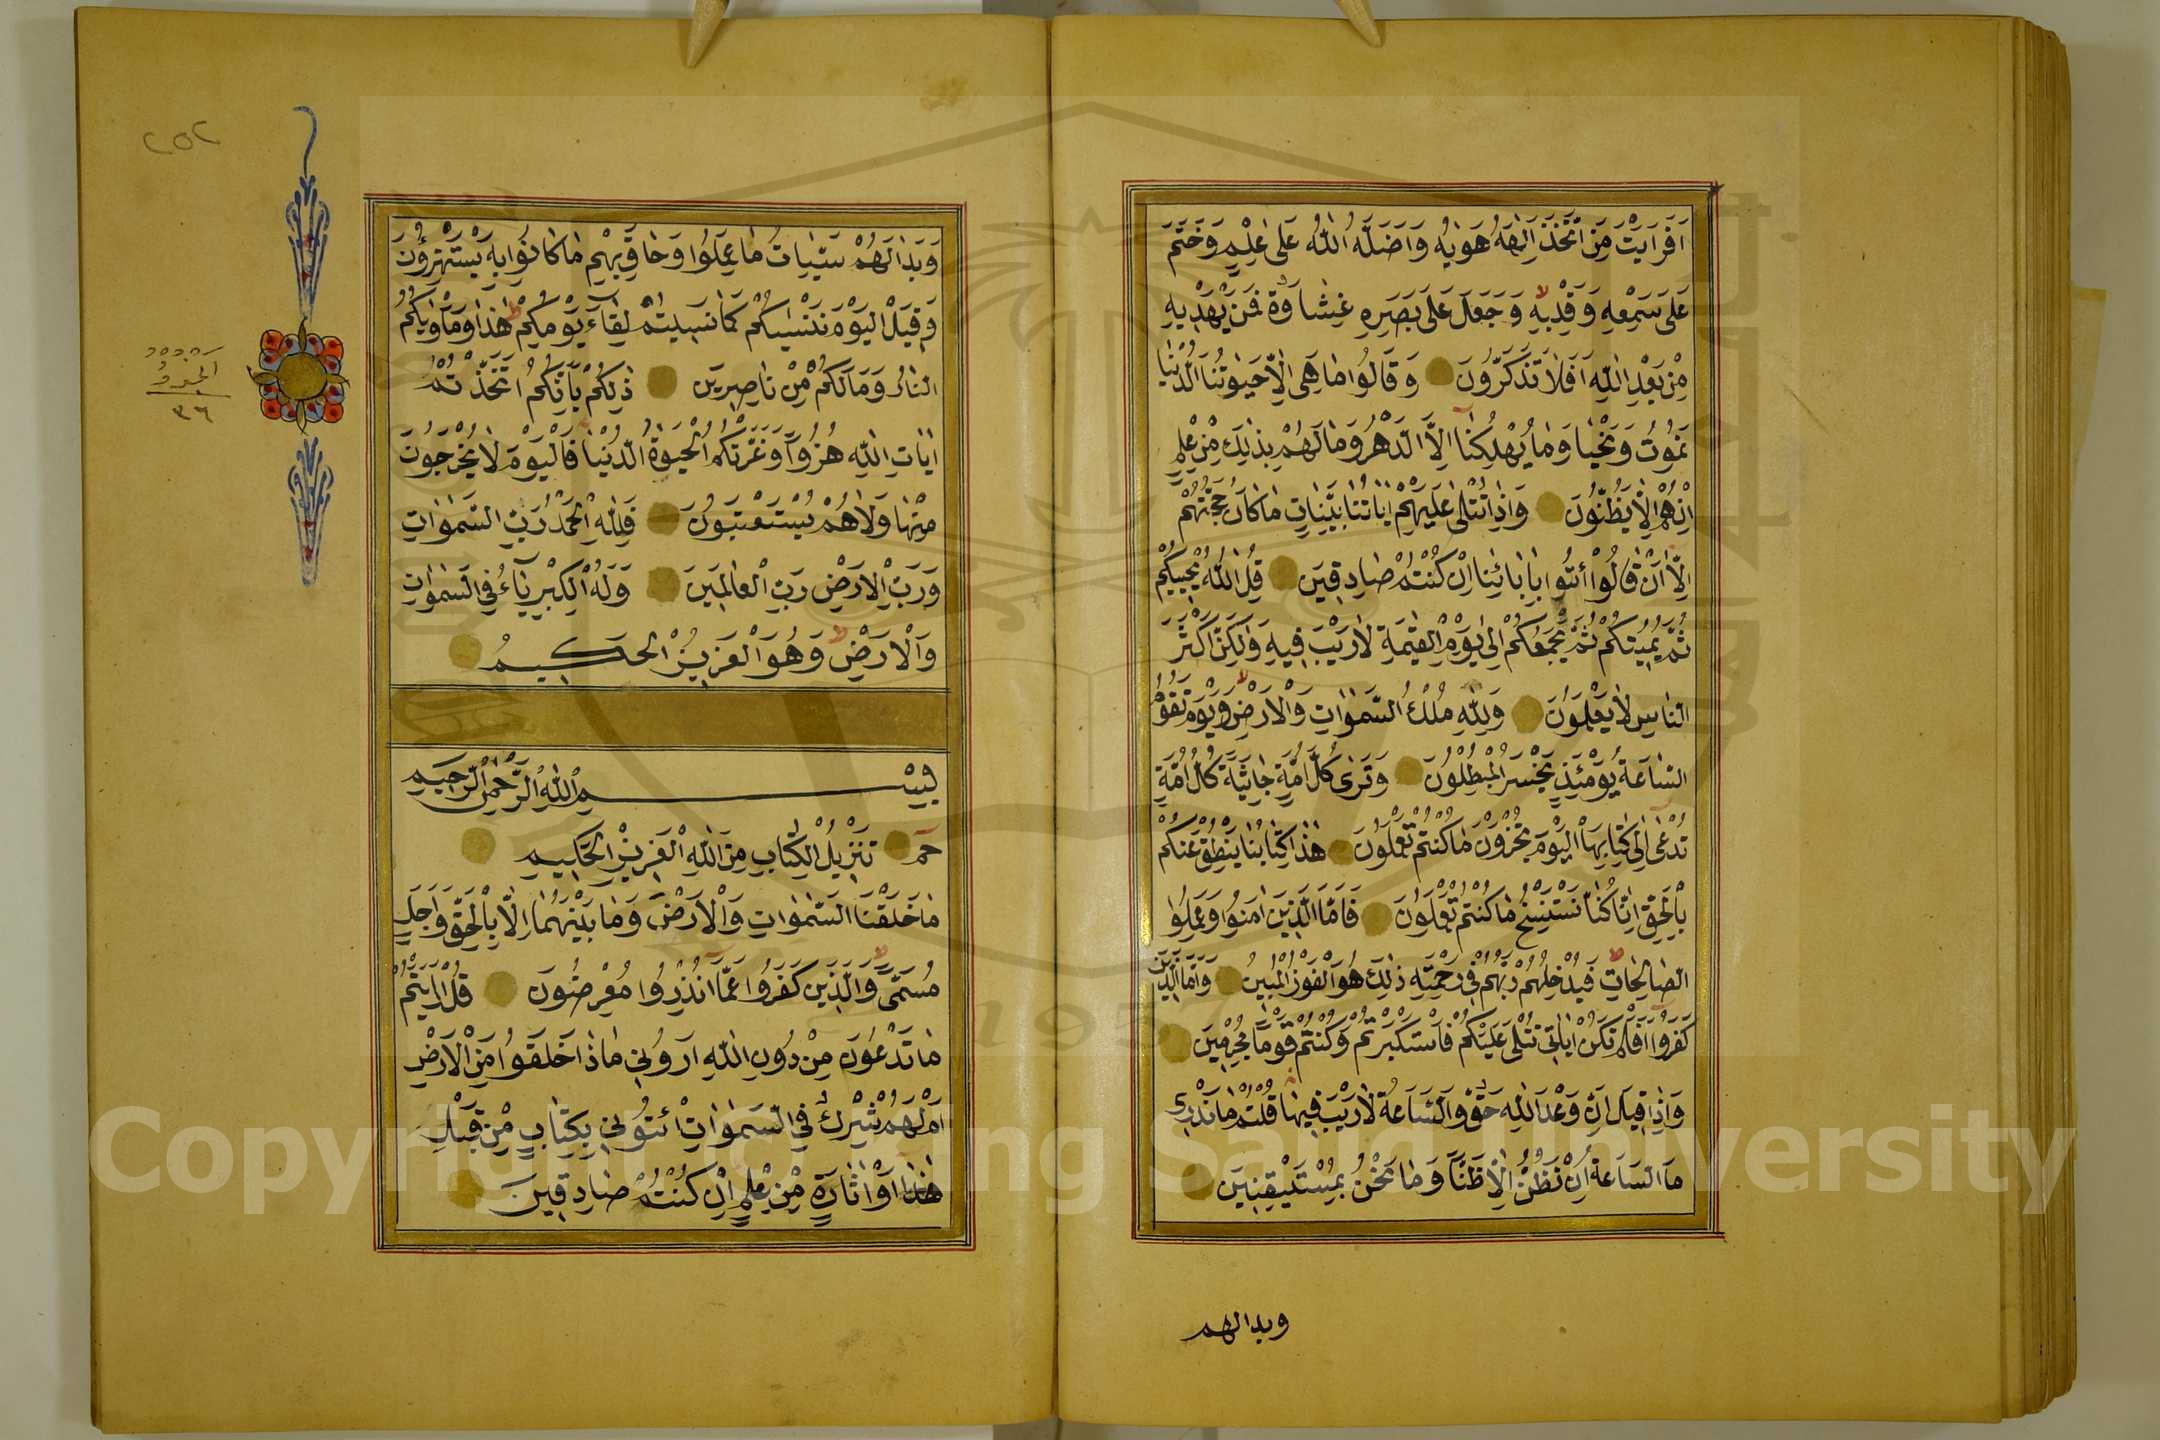 اَفَرَاَيْتَ مَنِ اتَّخَذَ اِلٰهَهُ هَوٰيهُ وَاَضَلَّهُ اللّٰهُ عَلٰى عِلْمٍ وَخَتَمَ
عَلٰى سَمْعِهٖ وَقَلْبِهٖ وَجَعَلَ عَلٰى بَصَرِهٖ غِشَاوَةً فَمَنْ يَهْدٖيهِ
مِنْ بَعْدِ اللّٰهِ اَفَلَا تَذَكَّرُونَ وَقَالُوا مَا هِىَ اِلَّا حَيٰوتُنَا الدُّنْيَا
نَمُوتُ وَنَحْيَا وَمَا يُهْلِكُنَا اِلَّا الدَّهْرُ وَمَا لَهُمْ بِذٰلِكَ مِنْ عِلْمٍ
اِنْ هُمْ اِلَّا يَظُنُّونَ وَاِذَا تُتْلٰى عَلَيْهِمْ اٰيَاتُنَا بَيِّنَاتٍ مَا كَانَ حُجَّتَهُمْ
اِلَّا اَنْ قَالُوا ائْتُوا بِاٰبَائِنَا اِنْ كُنْتُمْ صَادِقٖينَ قُلِ اللّٰهُ يُحْيٖيكُمْ
ثُمَّ يُمٖيتُكُمْ ثُمَّ يَجْمَعُكُمْ اِلٰى يَوْمِ الْقِيٰمَةِ لَا رَيْبَ فٖيهِ وَلٰكِنَّ اَكْثَرَ
النَّاسِ لَا يَعْلَمُونَ وَلِلّٰهِ مُلْكُ السَّمٰوَاتِ وَالْاَرْضِ وَيَوْمَ تَقُومُ
السَّاعَةُ يَوْمَئِذٍ يَخْسَرُ الْمُبْطِلُونَ وَتَرٰى كُلَّ اُمَّةٍ جَاثِيَةً كُلُّ اُمَّةٍ
تُدْعٰى اِلٰى كِتَابِهَا اَلْيَوْمَ تُجْزَوْنَ مَا كُنْتُمْ تَعْمَلُونَ هٰذَا كِتَابُنَا يَنْطِقُ عَلَيْكُمْ
بِالْحَقِّ اِنَّا كُنَّا نَسْتَنْسِخُ مَا كُنْتُمْ تَعْمَلُونَ فَاَمَّا الَّذٖينَ اٰمَنُوا وَعَمِلُوا
الصَّالِحَاتِ فَيُدْخِلُهُمْ رَبُّهُمْ فٖى رَحْمَتِهٖ ذٰلِكَ هُوَ الْفَوْزُ الْمُبٖينُ وَاَمَّا الَّذٖينَ
كَفَرُوا اَفَلَمْ تَكُنْ اٰيَاتٖى تُتْلٰى عَلَيْكُمْ فَاسْتَكْبَرْتُمْ وَكُنْتُمْ قَوْمًا مُجْرِمٖينَ
وَاِذَا قٖيلَ اِنَّ وَعْدَ اللّٰهِ حَقٌّ وَالسَّاعَةُ لَا رَيْبَ فٖيهَا قُلْتُمْ مَا نَدْرٖى
مَا السَّاعَةُ اِنْ نَظُنُّ اِلَّا ظَنًّا وَمَا نَحْنُ بِمُسْتَيْقِنٖينَ
وبدالهم
٢٥٢
وَبَدَا لَهُمْ سَيِّئَاتُ مَا عَمِلُوا وَحَاقَ بِهِمْ مَا كَانُوا بِهٖ يَسْتَهْزِؤُنَ
وَقٖيلَ الْيَوْمَ نَنْسٰيكُمْ كَمَا نَسٖيتُمْ لِقَاءَ يَوْمِكُمْ هٰذَا وَمَاْوٰيكُمُ
النَّارُ وَمَا لَكُمْ مِنْ نَاصِرٖينَ ذٰلِكُمْ بِاَنَّكُمُ اتَّخَذْتُمْ
اٰيَاتِ اللّٰهِ هُزُوًا وَغَرَّتْكُمُ الْحَيٰوةُ الدُّنْيَا فَالْيَوْمَ لَا يُخْرَجُونَ
مِنْهَا وَلَا هُمْ يُسْتَعْتَبُونَ فَلِلّٰهِ الْحَمْدُ رَبِّ السَّمٰوَاتِ
وَرَبِّ الْاَرْضِ رَبِّ الْعَالَمٖينَ وَلَهُ الْكِبْرِيَاءُ فِى السَّمٰوَاتِ
وَالْاَرْضِ وَهُوَ الْعَزٖيزُ الْحَكٖيمُ
الجزؤ
٣٦
بِسْمِ اللّٰهِ الرَّحْمٰنِ الرَّحٖيمِ
حٰم تَنْزٖيلُ الْكِتَابِ مِنَ اللّٰهِ الْعَزٖيزِ الْحَكٖيمِ
مَا خَلَقْنَا السَّمٰوَاتِ وَالْاَرْضَ وَمَا بَيْنَهُمَا اِلَّا بِالْحَقِّ وَاَجَلٍ
مُسَمًّى وَالَّذٖينَ كَفَرُوا عَمَّا اُنْذِرُوا مُعْرِضُونَ قُلْ اَرَاَيْتُمْ
مَا تَدْعُونَ مِنْ دُونِ اللّٰهِ اَرُونٖى مَاذَا خَلَقُوا مِنَ الْاَرْضِ
اَمْ لَهُمْ شِرْكٌ فِى السَّمٰوَاتِ ائْتُونٖى بِكِتَابٍ مِنْ قَبْلِ
هٰذَا اَوْ اَثَارَةٍ مِنْ عِلْمٍ اِنْ كُنْتُمْ صَادِقٖينَ
Copyright © King Saud University
1957